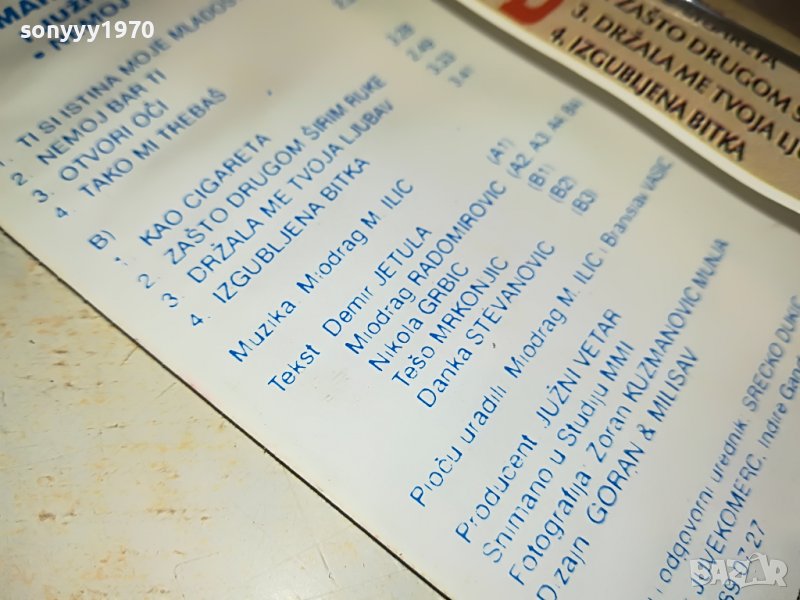 sonyyy1970
• NEMOJ
1. TI SI ISTINA MOJE MLADOS
2. NEMOJ BAR TI
3. OTVORI OČI
4. TAKO MI TREBAŠ
B)
1. KAO CIGARETA
2. ZAŠTO DRUGOM ŠIRIM RUKE
3. DRŽALA ME TVOJA LJUBAV
4. IZGUBLJENA BITKA
Muzika: Miodrag M. ILIC
Tekst Demir JETULA (A1)
Miodrag RADOMIROVIC (A2, A3, A4, B4)
Nikola GRBIC (B1)
Tešo MRKONJIC (B2)
Danka STEVANOVIC (B3)
Ploču uradili Miodrag M. ILIC i Branislav VASIC
Producent JUŽNI VETAR
Snimano u Studiju MMI
Fotografija: Zoran KUZMANOVIC MUNJA
Dizajn GORAN & MILISAV
odgovorni urednik SRECKO DUKIC
Indire Gand
ZAŠTO DRUGOM Š
3. DRŽALA ME TVOJA LJU
4. IZGUBLJENA BITKA
BAZAR
www.bazar.bg